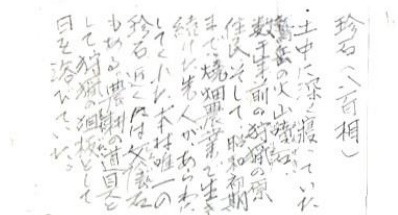 珍石(人面相)
・土中に深く寝っていた
岳の火山噴石。
数千年前の狩猟の原
住民そして昭和初期
まで焼畑農業で生き
続けた先人があらわに
してくれた。本は唯一の
珍石 近くには
もある。農耕の道具と
して狩猟の 板として
目を浴びていた。